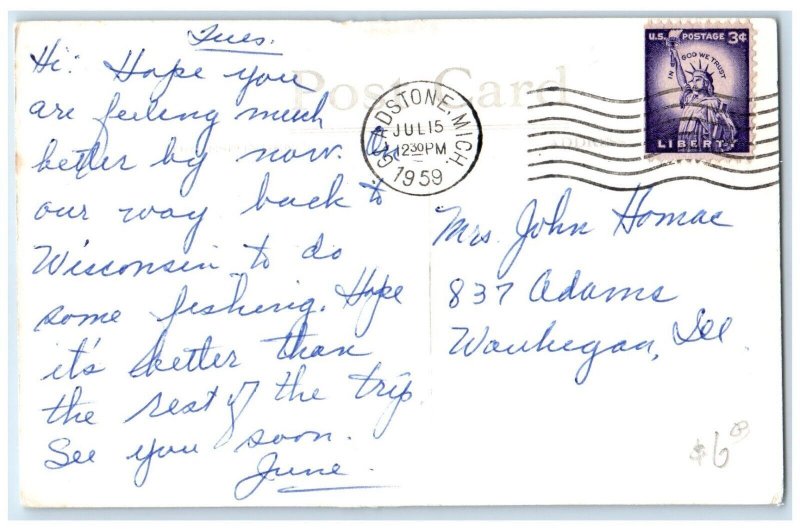 Tues.
Hi: Hope you
are feeling much
better by now. On
our way back to
Wisconsin to do
some fishing. Hope
it's better than
the rest of the trip.
See you soon.
June.
Post Card
GLADSTONE, MICH.
JUL 15
12 30 PM
1959
U.S. POSTAGE 3¢
IN GOD WE TRUST
LIBERTY
Mrs. John Homac
837 Adams
Waukegan, Ill
$6